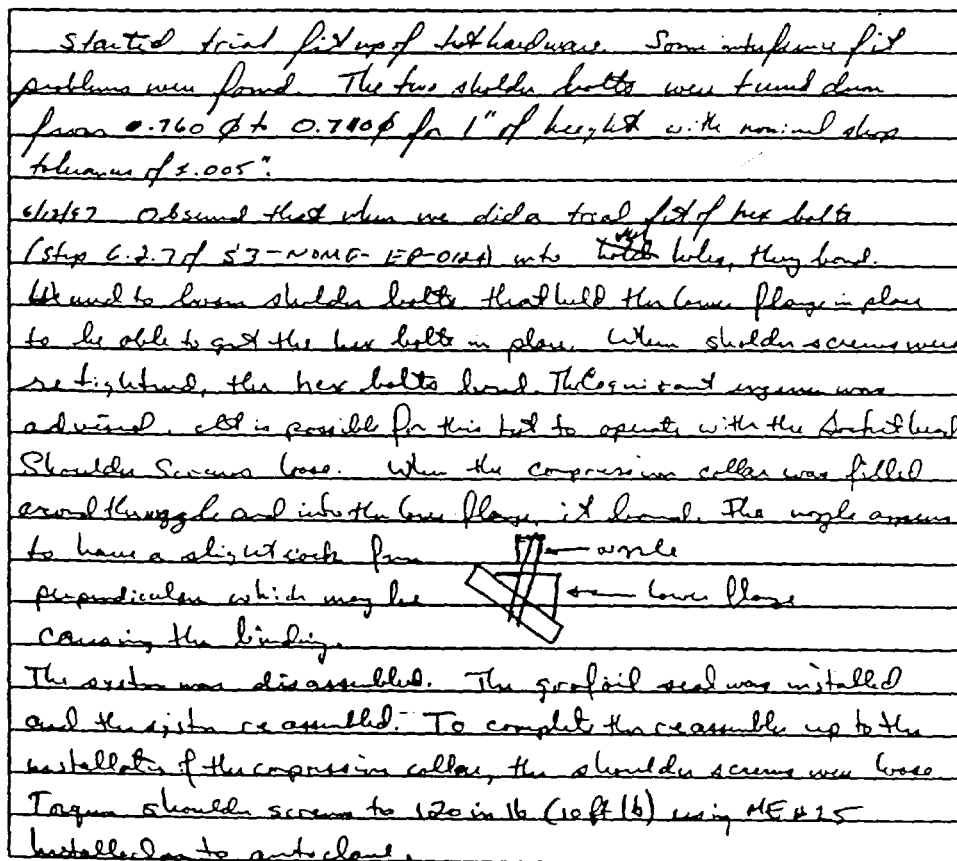 Started trial fit up of test hardware. Some interference fit
problems were found. The two sholder bolts were turned down
from 0.760 φ to 0.740 φ for 1" of height with nominal shop
tolerances of ±.005".
Observed that when we did a trial fit of hex bolts
(step 6.2.7 of into holes, they bind.
We need to loosen sholder bolts that held the lower flange in place
to be able to get the hex bolts in place. When sholder screws were
retightened, the hex bolts bind. The Cognizant engineer was
advised. It is possible for this test to operate with the Socket head
Shoulder Screws loose. When the compression collar was fitted
around the nozzle and into the lower flange, it bound. The nozzle
to have a slight cock from
nozzle
perpendicular which may be
lower flange
causing the binding.
The system was disassembled. The grafoil seal was installed
and the system reassembled. To complete the reassemble up to the
installation of the compression collar, the shoulder screws were loose
Torque shoulder screws to 120 in lb (10 ft lb) using ME#25
Installed on to autoclave.